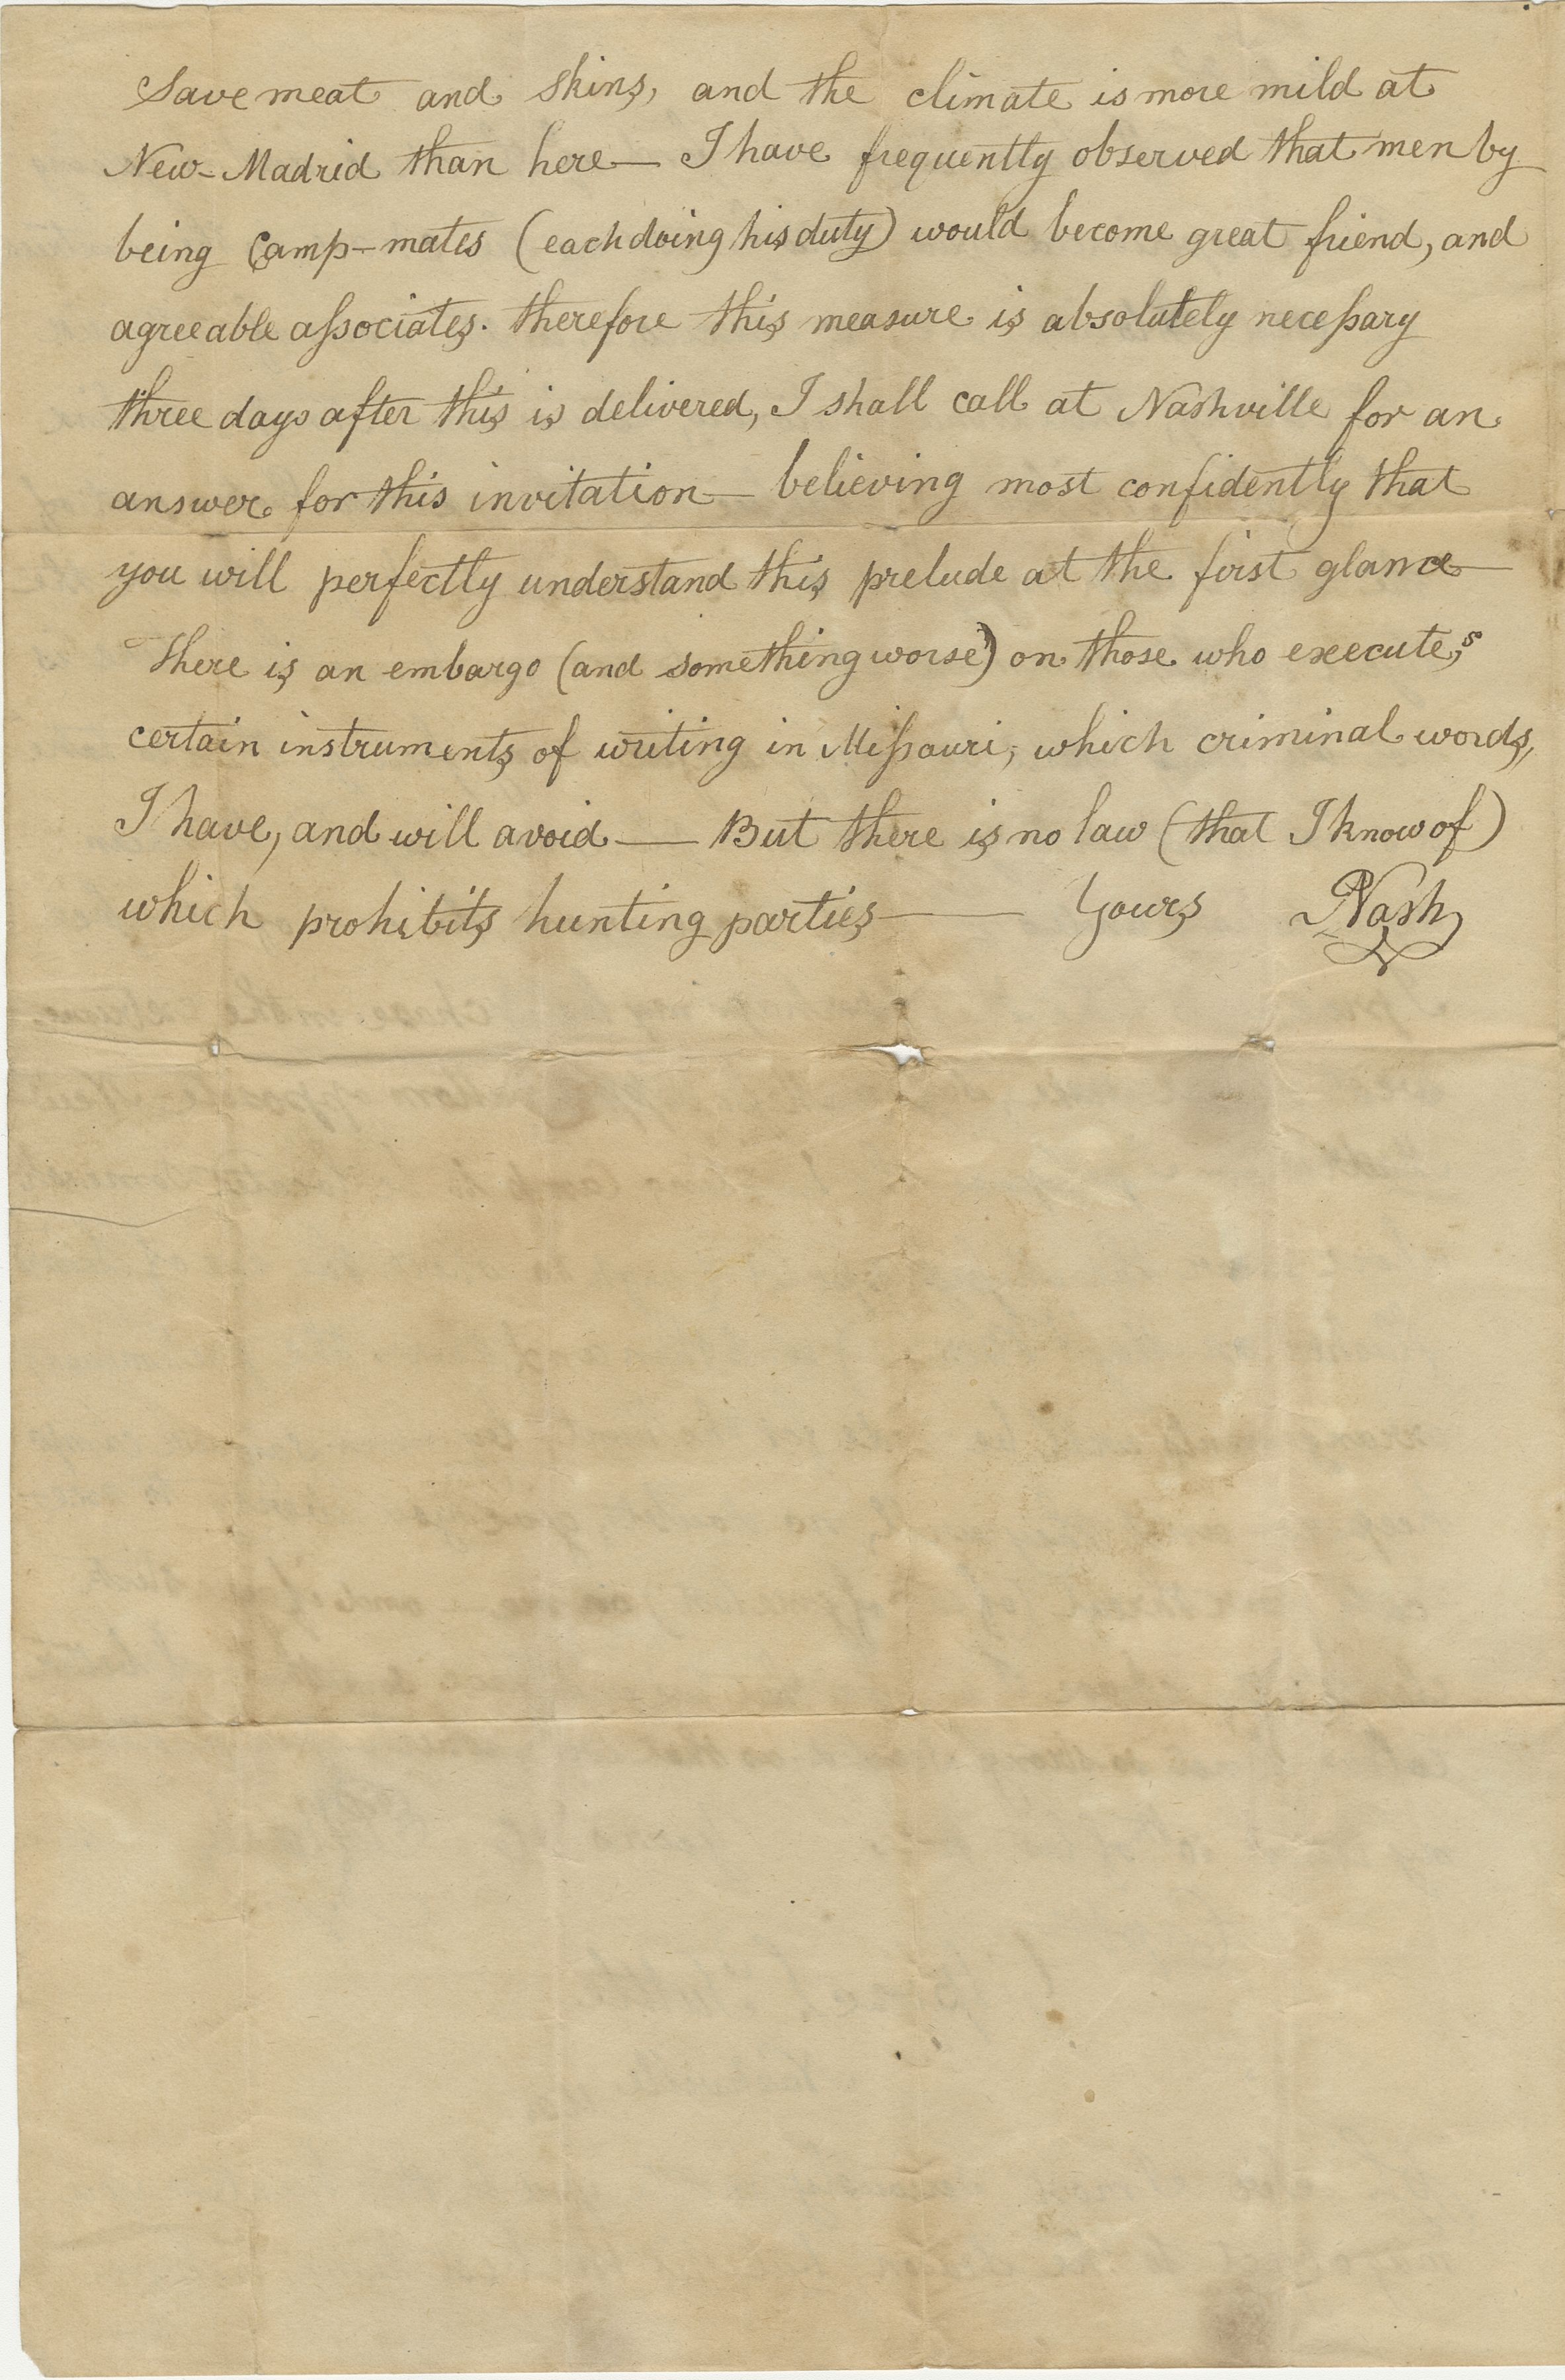 Save meat and skins, and the climate is more mild at
New-Madrid than here — I have frequently observed that men by
being Camp-mates (each doing his duty) would become great friend, and
agreeable aſsociates. therefore this measure is absolutely neceſsary
three days after this is delivered, I shall call at Nashville for an
answer for this invitation — believing most confidently that
you will perfectly understand this prelude at the first glance —
there is an embargo (and something worse) on those who execute,s
certain instruments of writing in Miſsouri, which criminal words,
I have, and will avoid — But there is no law (that I know of)
which prohibits hunting parties — Yours Nash